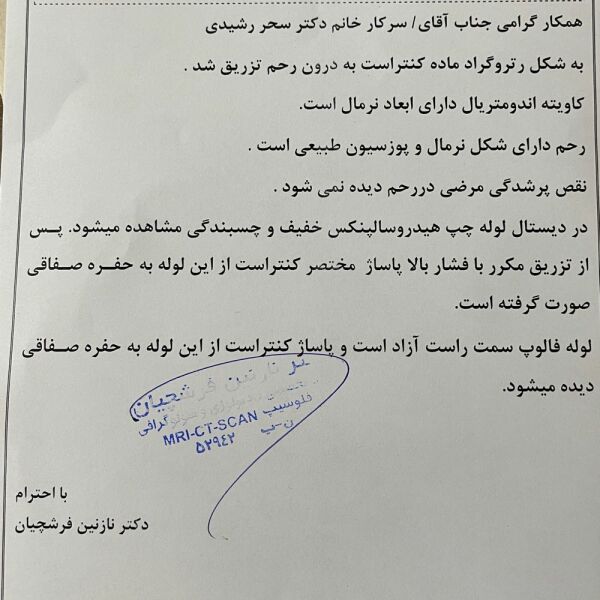 همکار گرامی جناب آقای/ سرکار خانم دکتر سحر رشیدی
به شکل رتروگراد ماده کنتراست به درون رحم تزریق شد .
کاویته اندومتریال دارای ابعاد نرمال است.
رحم دارای شکل نرمال و پوزسیون طبیعی است .
نقص پرشدگی مرضی دررحم دیده نمی شود .
در دیستال لوله چپ هیدروسالپنکس خفیف و چسبندگی مشاهده میشود. پس
از تزریق مکرر با فشار بالا پاساژ مختصر کنتراست از این لوله به حفره صفاقی
صورت گرفته است.
لوله فالوپ سمت راست آزاد است و پاساژ کنتراست از این لوله به حفره صفاقی
دیده میشود.
نازنین فرشچیان
رادیولوژی و سونوگرافی
فلوسیپ MRI-CT-SCAN
ن-پ ۵۲۹۴۲
با احترام
دکتر نازنین فرشچیان